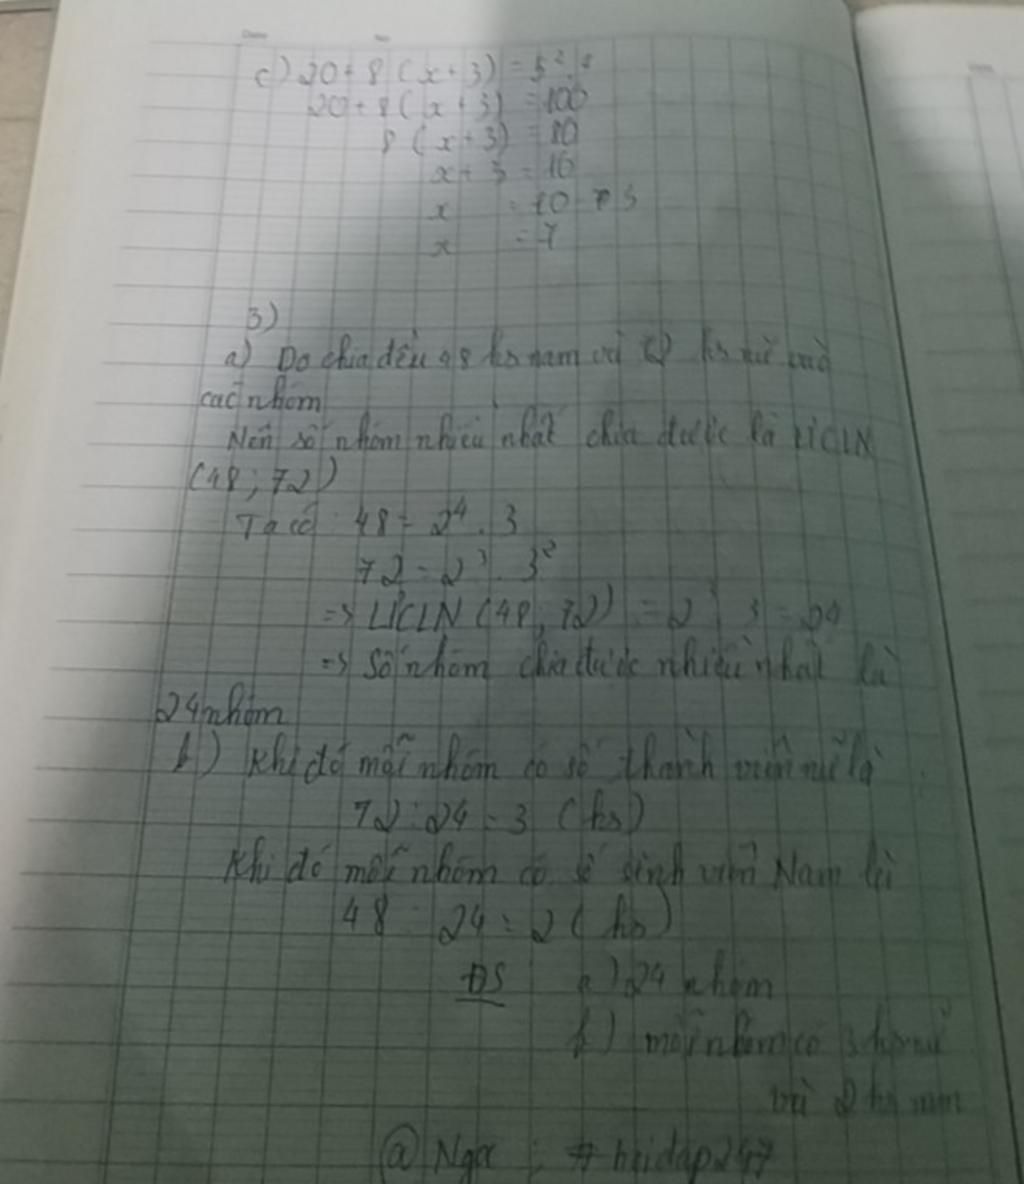 c) 20 + 8 (x + 3) = 5² . 4
20 + 8 (x + 3) = 100
8 (x + 3) = 80
x + 3 = 10
x = 10 - 3
x = 7
3)
a) Do chia đều 48 hs nam và 72 hs nữ vào
các nhóm
Nên số nhóm nhiều nhất chia được là ƯCLN
(48 ; 72)
Ta có 48 = 2⁴ . 3
72 = 2³ . 3²
=> ƯCLN (48 ; 72) = 2³ . 3 = 24
=> Số nhóm chia được nhiều nhất là
24 nhóm
b) Khi đó mỗi nhóm có số thành viên nữ là
72 : 24 = 3 (hs)
Khi đó mỗi nhóm có số sinh viên Nam là
48 : 24 = 2 (hs)
ĐS a) 24 nhóm
b) mỗi nhóm có 3 hs nữ
và 2 hs nam
@ Nga : # hoidap247